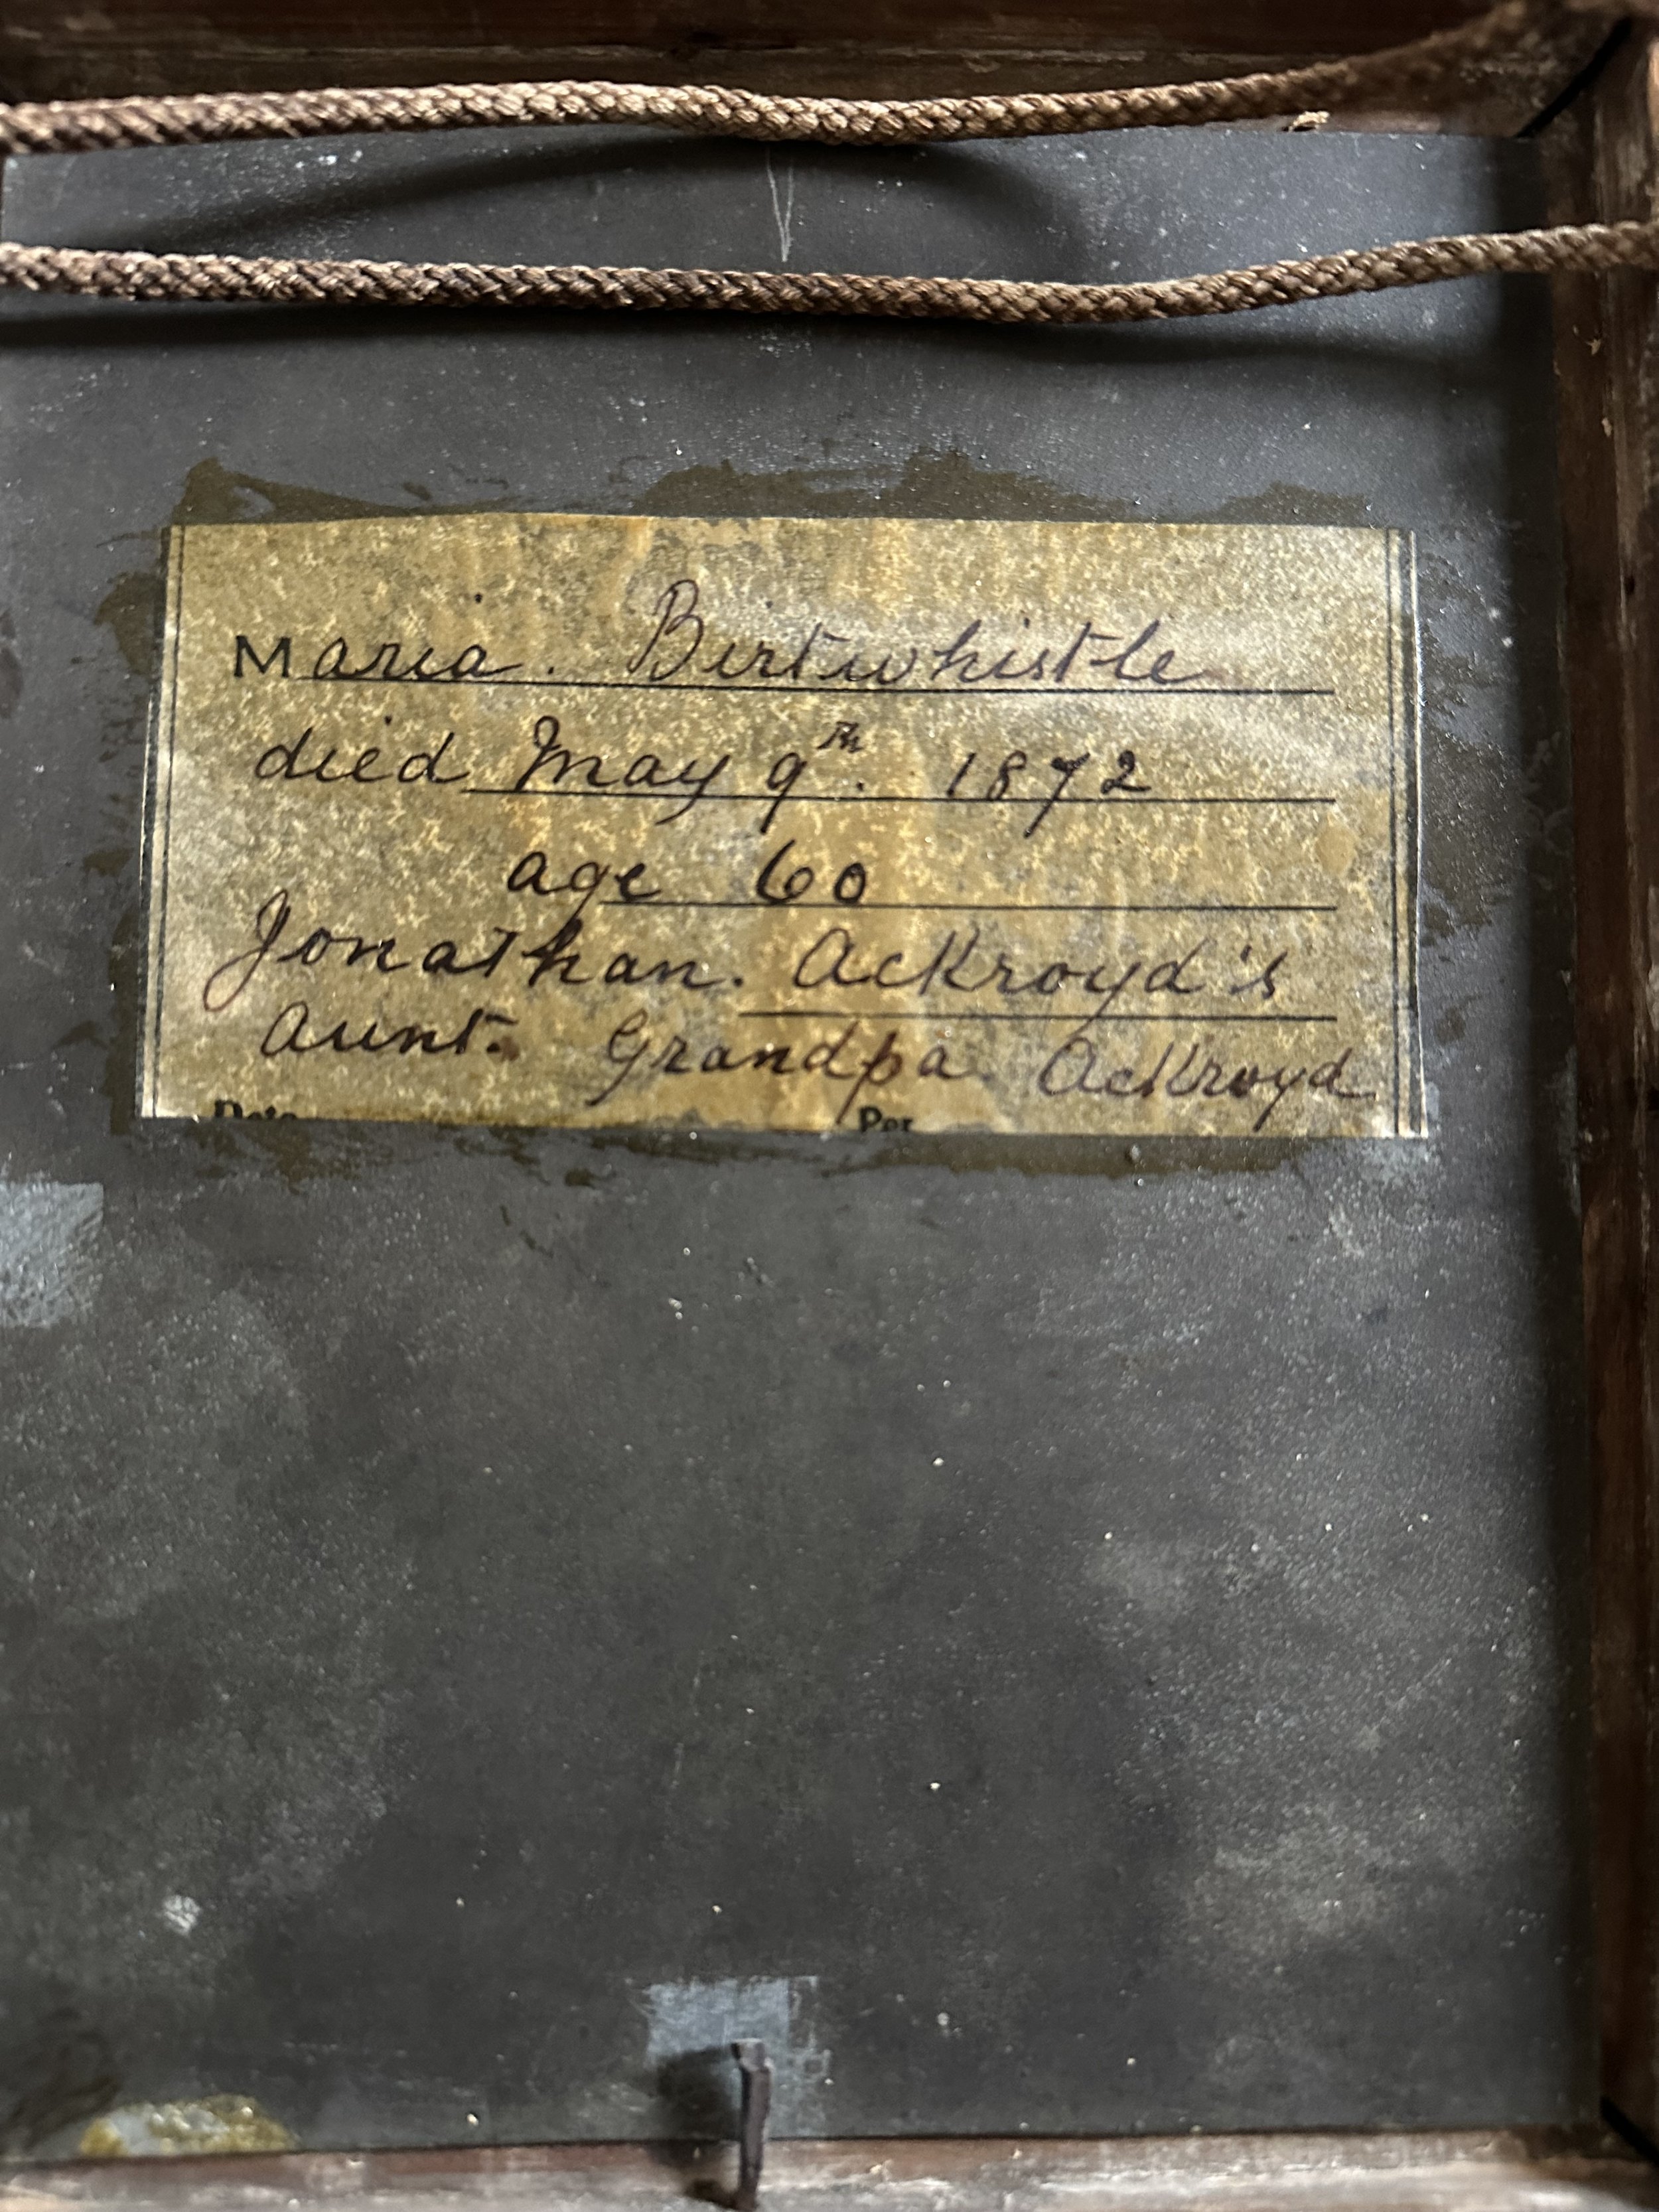 Maria. Birtwhistle
died May 9th. 1872
age 60
Jonathan. Ackroyd's
Aunt. Grandpa Ackroyd
Date Per